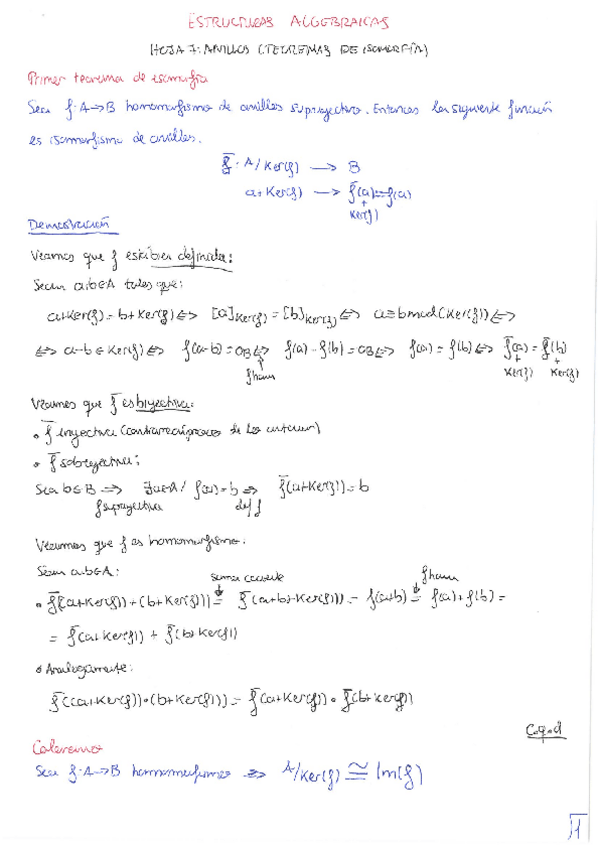 ESTRUCTURAS ALGEBRAICAS
HOJA 7: ANILLOS (TEOREMAS DE ISOMORFÍA)
Primer teorema de isomorfía
Sea f: A→B homomorfismo de anillos suprayectivo. Entonces la siguiente función
es isomorfismo de anillos.
f̄: A/Ker(f) → B
a+Ker(f) → f̄(a)=f(a)
+
Ker(f)
Demostración
Veamos que f̄ está bien definida:
Sean a,b∈A tales que:
a+Ker(f) = b+Ker(f) ⟺ [a]Ker(f) = [b]Ker(f) ⟺ a≡b mod(Ker(f)) ⟺
⟺ a-b ∈ Ker(f) ⟺ f(a-b) = 0B ⟺ f(a) - f(b) = 0B ⟺ f(a) = f(b) ⟺ f̄(a) = f̄(b)
f hom
+ +
Ker(f) Ker(f)
Veamos que f̄ es biyectiva:
• f̄ inyectiva (contrarrecíproco de lo anterior)
• f̄ sobreyectiva:
Sea b∈B ⟹ ∃a∈A / f(a)=b ⟹ f̄(a+Ker(f)) = b
f suprayectiva def f̄
Veamos que f̄ es homomorfismo.
Sean a,b∈A:
suma cociente f hom
• f̄((a+Ker(f)) + (b+Ker(f))) = f̄((a+b)+Ker(f)) = f(a+b) = f(a)+f(b) =
= f̄(a+Ker(f)) + f̄(b+Ker(f))
• Análogamente:
f̄((a+Ker(f))•(b+Ker(f))) = f̄(a+Ker(f)) • f̄(b+Ker(f))
C.q.d
Corolario
Sea f: A→B homomorfismo ⟹ A/Ker(f) ≅ Im(f)
1